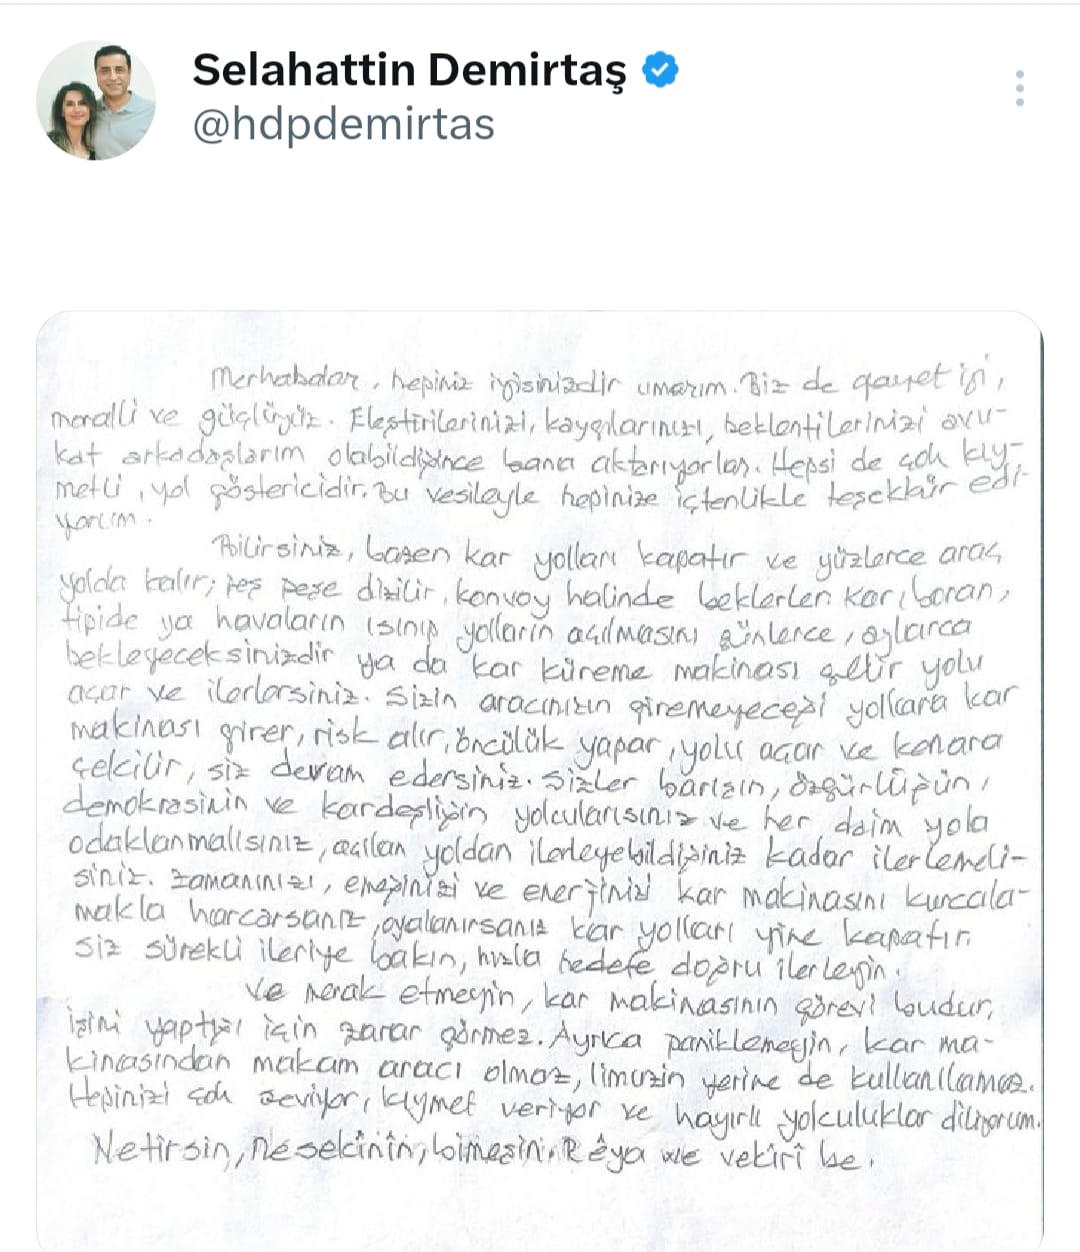 Selahattin Demirtaş
@hdpdemirtas
Merhabalar, hepiniz iyisinizdir umarım. Biz de gayet iyi,
moralli ve güçlüyüz. Eleştirilerinizi, kaygılarınızı, beklentilerinizi avu-
kat arkadaşlarım olabildiğince bana aktarıyorlar. Hepsi de çok kıy-
metli, yol göstericidir. Bu vesileyle hepinize içtenlikle teşekkür edi-
yorum.
Bilirsiniz, bazen kar yolları kapatır ve yüzlerce araç
yolda kalır; peş peşe dizilir, konvoy halinde beklerler. Kar, boran,
tipide ya havaların ısınıp yolların açılmasını günlerce, aylarca
bekleyeceksinizdir ya da kar küreme makinası gelir yolu
açar ve ilerlersiniz. Sizin aracınızın giremeyeceği yollara kar
makinası girer, risk alır, öncülük yapar, yolu açar ve kenara
çekilir, siz devam edersiniz. Sizler barışın, özgürlüğün,
demokrasinin ve kardeşliğin yolcularısınız ve her daim yola
odaklanmalısınız, açılan yoldan ilerleyebildiğiniz kadar ilerlemeli-
siniz. Zamanınızı, emeğinizi ve enerjinizi kar makinasını kurcala-
makla harcarsanız, oyalanırsanız kar yolları yine kapatır.
Siz sürekli ileriye bakın, hızla hedefe doğru ilerleyin.
Ve merak etmeyin, kar makinasının görevi budur,
işini yaptığı için zarar görmez. Ayrıca paniklemeyin, kar ma-
kinasından makam aracı olmaz, limuzin yerine de kullanılamaz.
Hepinizi çok seviyor, kıymet veriyor ve hayırlı yolculuklar diliyorum.
Netirsin, nesekinîn, bimeşin. Rêya we vekirî be.